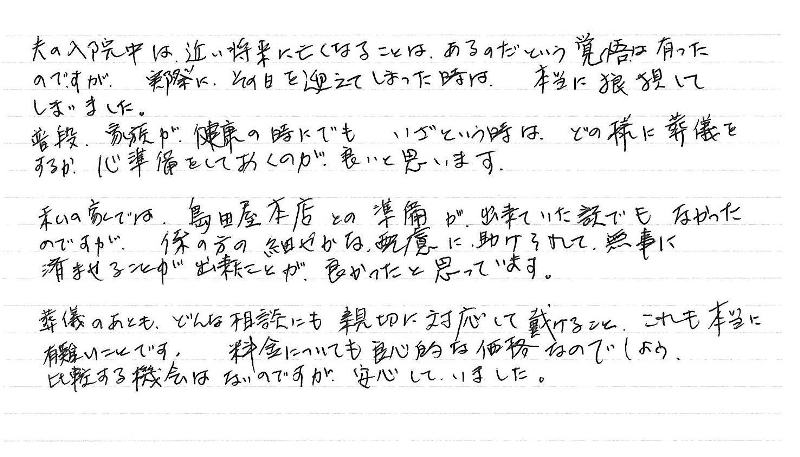 夫の入院中は、近い将来に亡くなることは、あるのだという覚悟は有った
のですが、実際に、その日を迎えてしまった時は、本当に狼狽して
しまいました。
普段、家族が、健康の時にでも いざという時は、どの様に葬儀を
するか、心準備をしておくのが、良いと思います。
私の家では、島田屋本店との準備が、出来ていた訳でもなかった
のですが、係の方の細やかな配慮に、助けられて、無事に
済ませることが出来たことが、良かったと思っています。
葬儀のあとも、どんな相談にも親切に対応して戴けること、これも本当に
有難いことです。料金についても良心的な価格なのでしょう、
比較する機会はないのですが、安心していました。